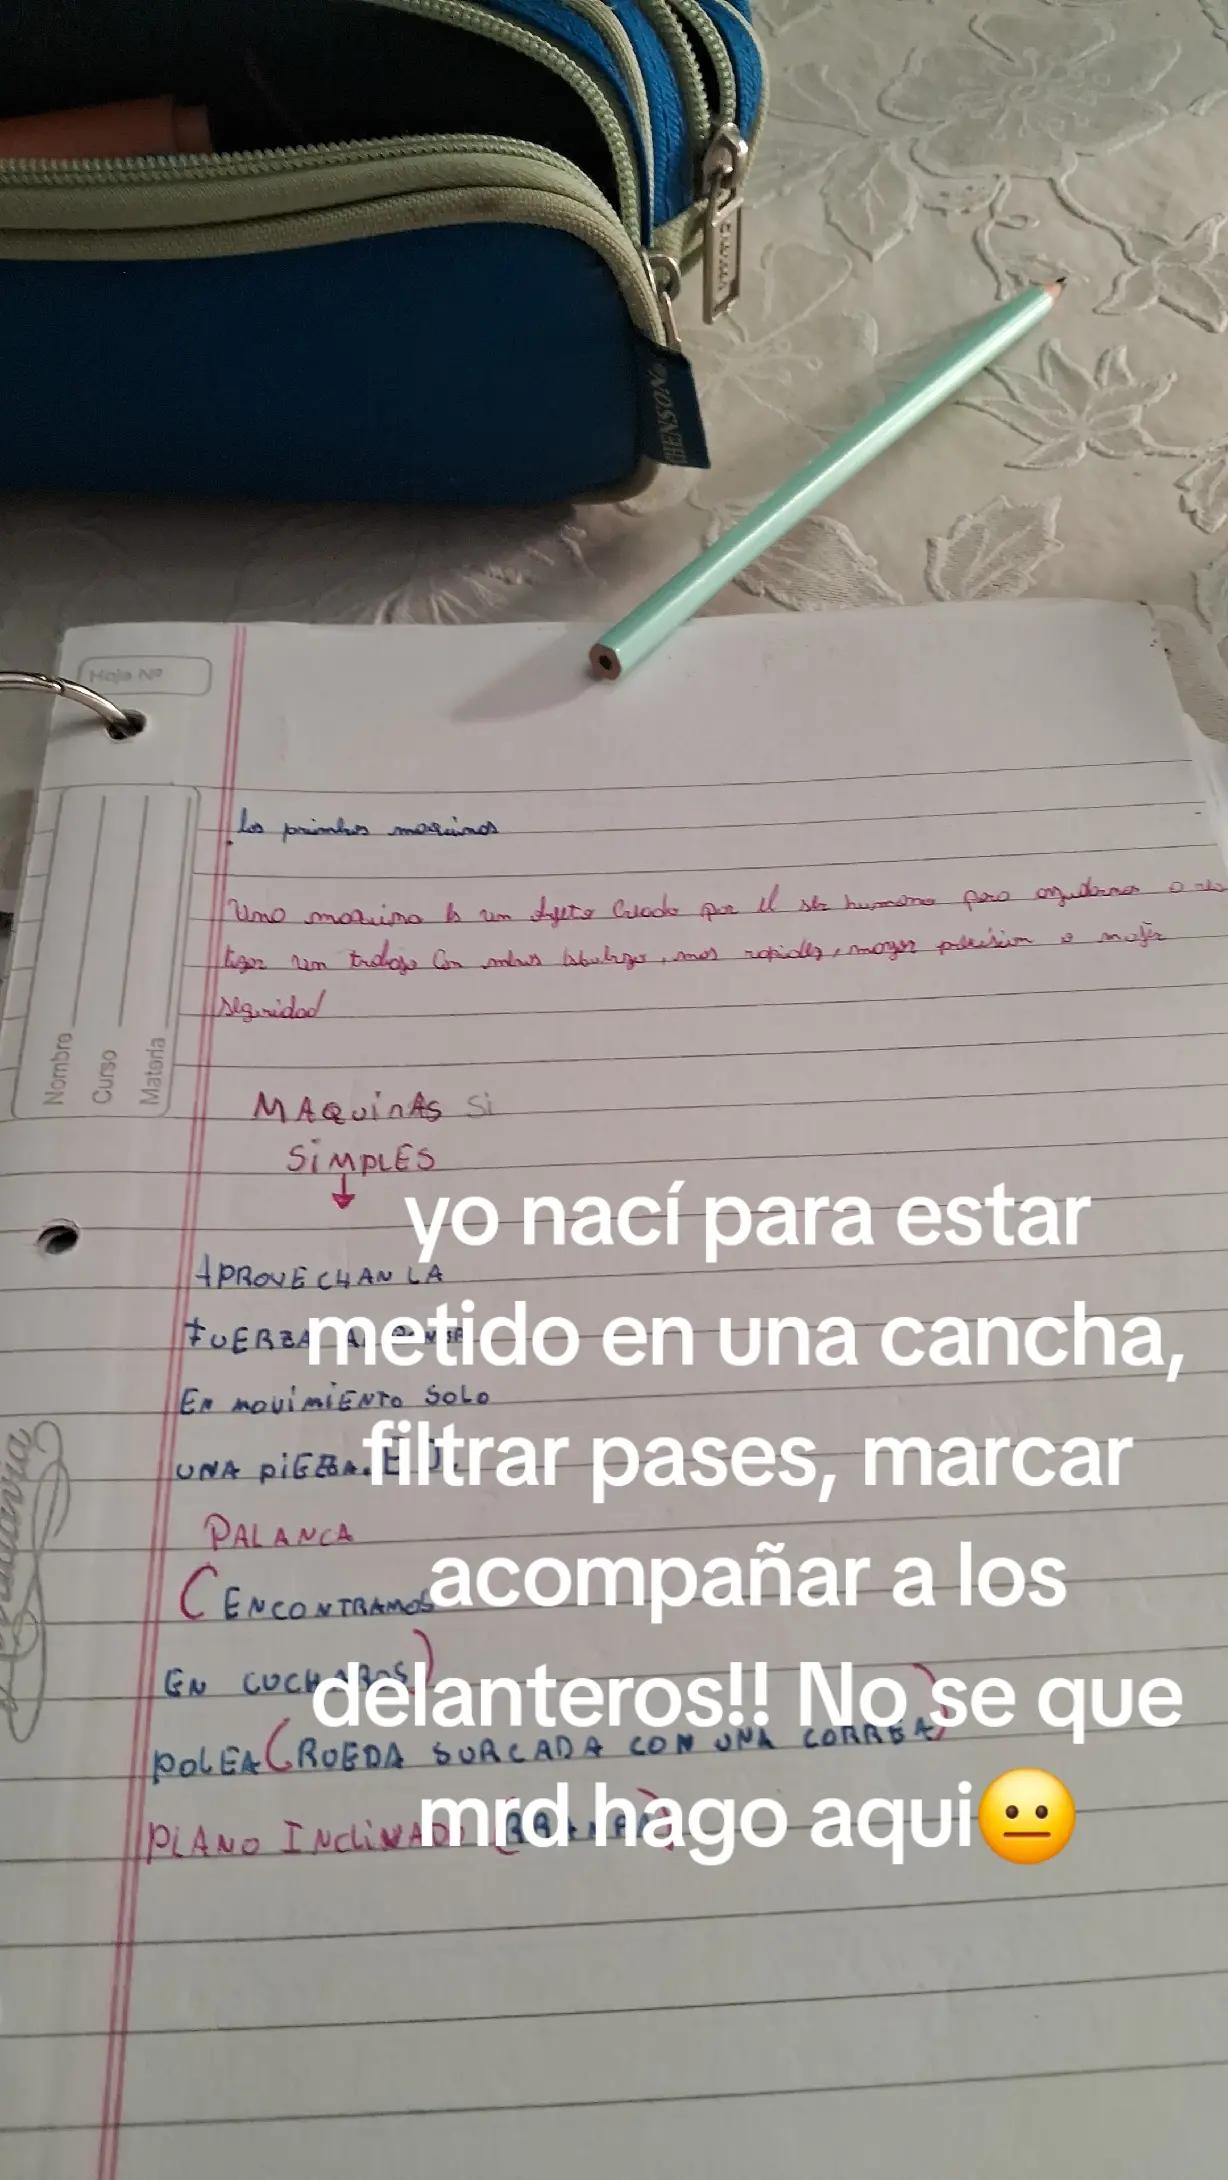 HENSON
Hoja Nº
Nombre
Curso
Materia
Rivadavia
las primeras maquinas
Una maquina es un objeto creado por el ser humano para ayudarnos a rea
lizar un trabajo con menos esfuerzo, mas rapidez, mayor precision o mejor
seguridad
MAQuinAs Si
SiMPLES
APROVECHAN LA
FUERZA AL PONER
En movimiento solo
UNA PIEZA. EJ.
PALANCA
(ENCONTRAMOS
EN CUCHARAS)
POLEA (RUEDA SURCADA CON UNA CORREA)
PLANO INCLINADO (RAMPA)
yo nací para estar
metido en una cancha,
filtrar pases, marcar
acompañar a los
delanteros!! No se que
mrd hago aqui😐